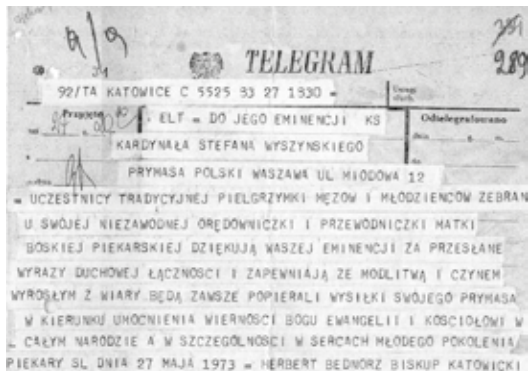 351
289
TELEGRAM
92/TA KATOWICE C 5525 93 27 1330 =
Uwagi służb.
Przyjęto
Odtelegrafowano
. ELT = DO JEGO EMINENCJI KS
KARDYNAŁA STEFANA WYSZYNSKIEGO
PRYMASA POLSKI WASZAWA UL MIODOWA 12
= UCZESTNICY TRADYCYJNEJ PIELGRZYMKI MĘZOW I MŁODZIENCOW ZEBRAN
U SWOJEJ NIEZAWODNEJ ORĘDOWNICZKI I PRZEWODNICZKI MATKI
BOSKIEJ PIEKARSKIEJ DZIĘKUJĄ WASZEJ EMINENCJI ZA PRZESŁANE
WYRAZY DUCHOWEJ ŁĄCZNOSCI I ZAPEWNIAJĄ ZE MODLITWĄ I CZYNEM
WYROSŁYM Z WIARY BĘDĄ ZAWSZE POPIERALI WYSIŁKI SWOJEGO PRYMASA
W KIERUNKU UMOCNIENIA WIERNOSCI BOGU EWANGELII I KOSCIOŁOWI W
CAŁYM NARODZIE A W SZCZEGOLNOSCI W SERCACH MŁODEGO POKOLENIA
PIEKARY SL DNIA 27 MAJA 1973 = HERBERT BEDNORZ BISKUP KATOWICKI